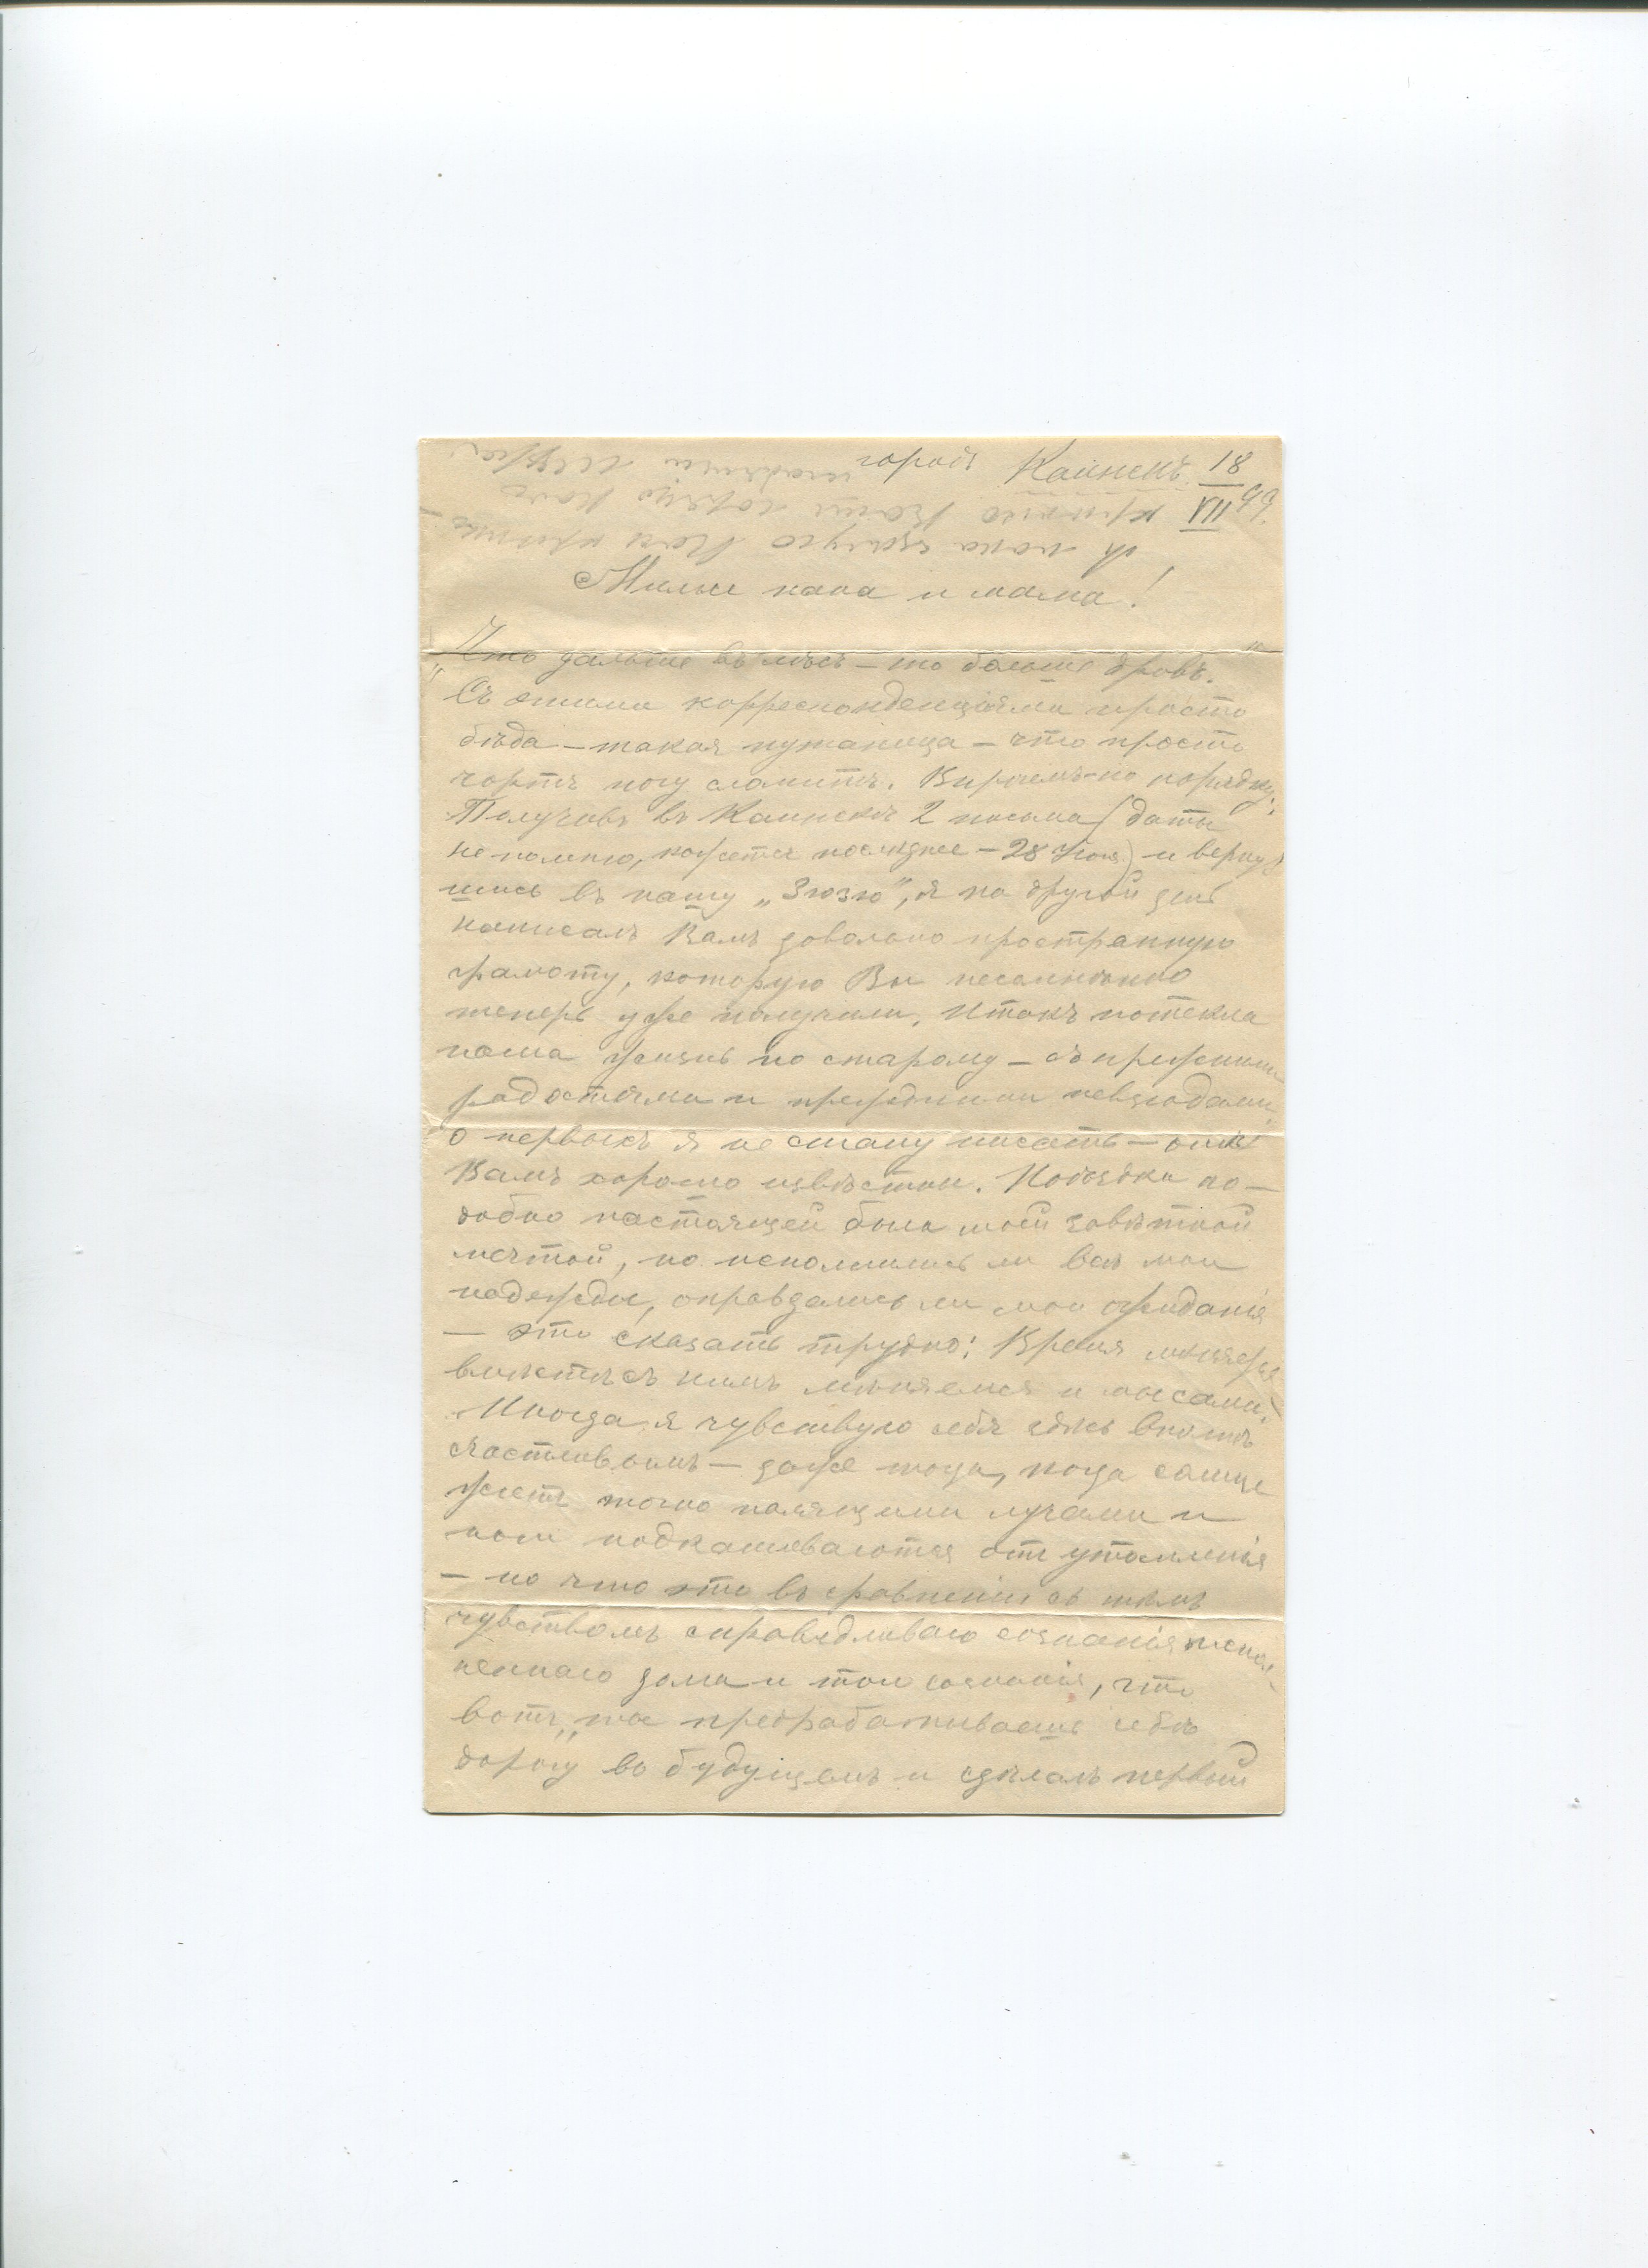 городъ Каинскъ 18/VII 99.
А пока цѣлую
крѣпко Ваш горячо
Милые папа и мама!
"Что дальше въ лѣсъ – то больше дровъ."
Съ этими корреспонденціями просто
бѣда – такая путаница – что просто
чортъ ногу сломитъ. Впрочемъ по порядку.
Получивъ въ Каинскѣ 2 письма (даты
не помню, кажется послѣднее – 28 Іюня) и верну
шись въ нашу „Зюзю", я на другой день
написалъ Вамъ довольно пространную
грамоту, которую Вы несомнѣнно
теперь уже получили. Итакъ потекла
наша жизнь по старому – съ прежними
радостями и прежними невзгодами
о первыхъ я не стану писать – онѣ
Вамъ хорошо извѣстны. Поѣздка по–
добно настоящей была моей завѣтной
мечтой, но исполнились ли всѣ мои
надежды, оправдались ли мои ожиданія
– это сказать трудно: Время
вмѣстѣ съ нимъ мѣняемся и мы сами.
Иногда я чувствую себя здѣсь вполнѣ
счастливымъ – даже тогда, когда солнце
жжетъ точно палящими лучами и
ноги подкашиваются отъ утомленія
– но что это въ сравненіи съ тѣмъ
чувствомъ справедливаго сознанія испол
неннаго долга и того сознанія, что
вотъ „ты прорабатываешь себѣ
дорогу въ будущемъ и сдѣлалъ первый